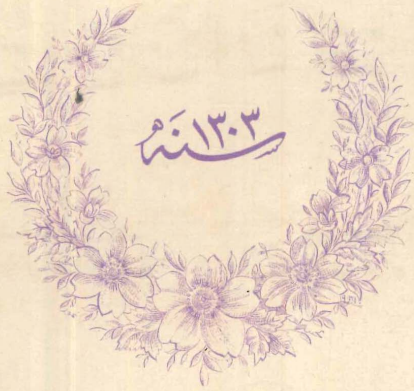 سنه ١٣٠٣